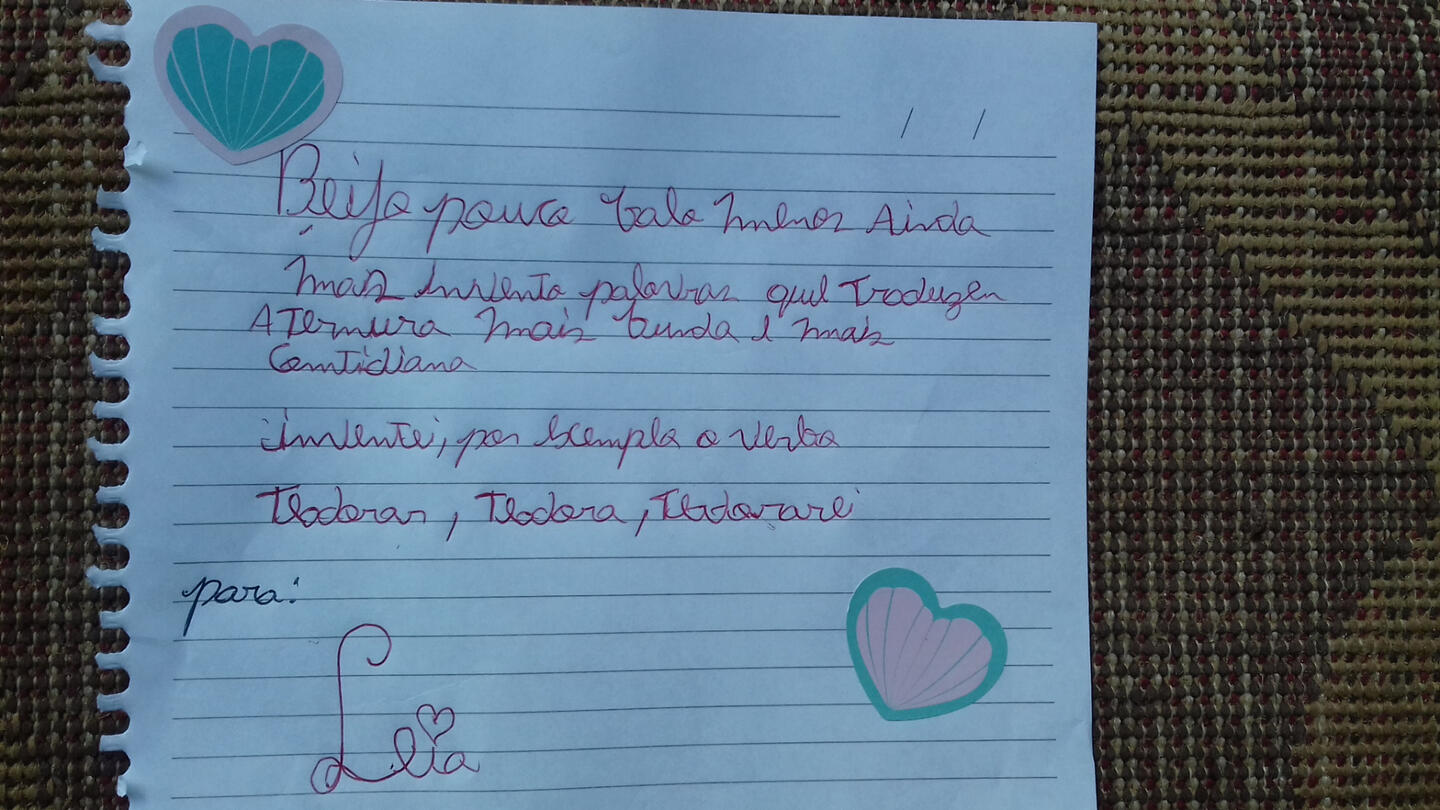 Beijo pouco falo menos Ainda
mas invento palavras que Traduzen
A Ternura mais funda e mais
Contidiana
inventei, por Exemplo o verbo
Teodorar, Teodora, Teodorarei
para:
Leia